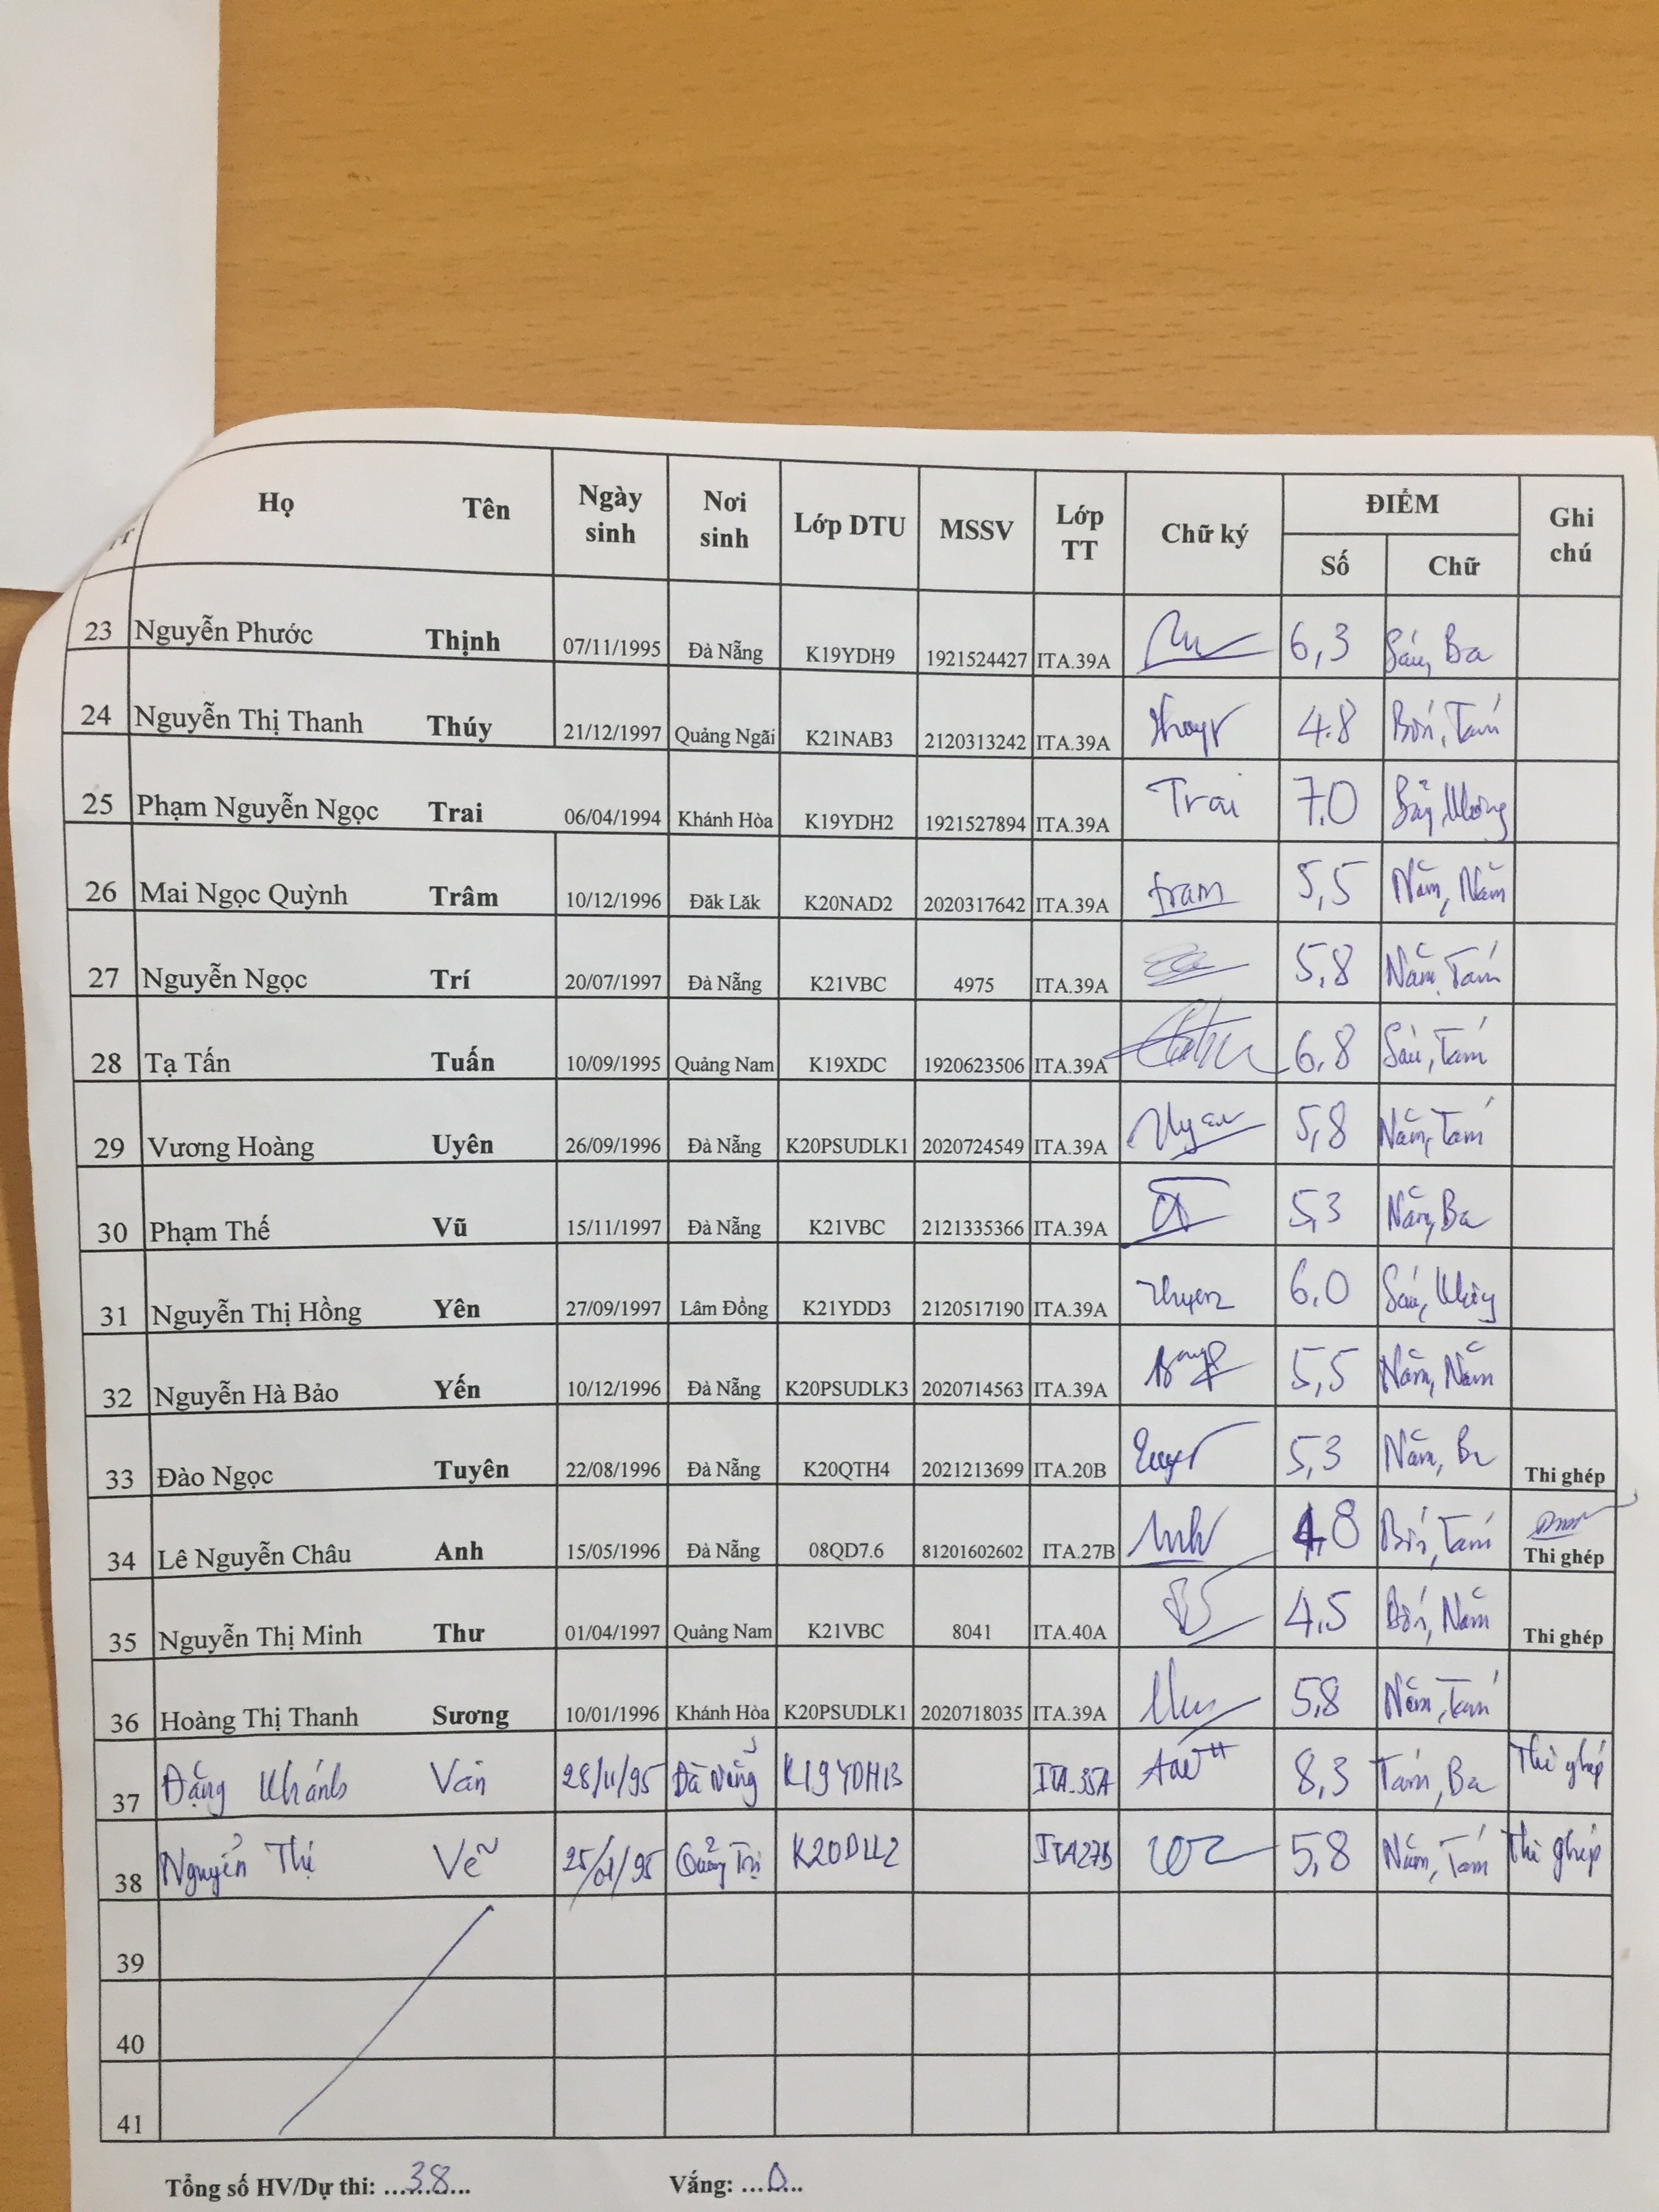 TT Họ Tên Ngày sinh Nơi sinh Lớp DTU MSSV Lớp TT Chữ ký ĐIỂM Ghi chú
Số Chữ
23 Nguyễn Phước Thịnh 07/11/1995 Đà Nẵng K19YDH9 1921524427 ITA.39A 6,3 Sáu, Ba
24 Nguyễn Thị Thanh Thúy 21/12/1997 Quảng Ngãi K21NAB3 2120313242 ITA.39A 4.8 Bốn, Tám
25 Phạm Nguyễn Ngọc Trai 06/04/1994 Khánh Hòa K19YDH2 1921527894 ITA.39A Trai 7,0 Bảy, Không
26 Mai Ngọc Quỳnh Trâm 10/12/1996 Đăk Lăk K20NAD2 2020317642 ITA.39A tram 5,5 Năm, Năm
27 Nguyễn Ngọc Trí 20/07/1997 Đà Nẵng K21VBC 4975 ITA.39A 5,8 Năm, Tám
28 Tạ Tấn Tuấn 10/09/1995 Quảng Nam K19XDC 1920623506 ITA.39A 6,8 Sáu, Tám
29 Vương Hoàng Uyên 26/09/1996 Đà Nẵng K20PSUDLK1 2020724549 ITA.39A 5,8 Năm, Tám
30 Phạm Thế Vũ 15/11/1997 Đà Nẵng K21VBC 2121335366 ITA.39A 5,3 Năm, Ba
31 Nguyễn Thị Hồng Yên 27/09/1997 Lâm Đồng K21YDD3 2120517190 ITA.39A 6,0 Sáu, Không
32 Nguyễn Hà Bảo Yến 10/12/1996 Đà Nẵng K20PSUDLK3 2020714563 ITA.39A 5,5 Năm, Năm
33 Đào Ngọc Tuyên 22/08/1996 Đà Nẵng K20QTH4 2021213699 ITA.20B 5,3 Năm, Ba Thi ghép
34 Lê Nguyễn Châu Anh 15/05/1996 Đà Nẵng 08QD7.6 81201602602 ITA.27B 4,8 Bốn, Tám Thi ghép
35 Nguyễn Thị Minh Thư 01/04/1997 Quảng Nam K21VBC 8041 ITA.40A 4,5 Bốn, Năm Thi ghép
36 Hoàng Thị Thanh Sương 10/01/1996 Khánh Hòa K20PSUDLK1 2020718035 ITA.39A 5,8 Năm, Tám
37 Đặng Khánh Vân 28/11/95 Đà Nẵng K19YDH13 ITA.35A 8,3 Tám, Ba Thi ghép
38 Nguyễn Thị Vẽ 25/01/95 Quảng Trị K20DLL2 ITA27B 5,8 Năm, Tám Thi ghép
39
40
41
Tổng số HV/Dự thi: ...38... Vắng: ...0...